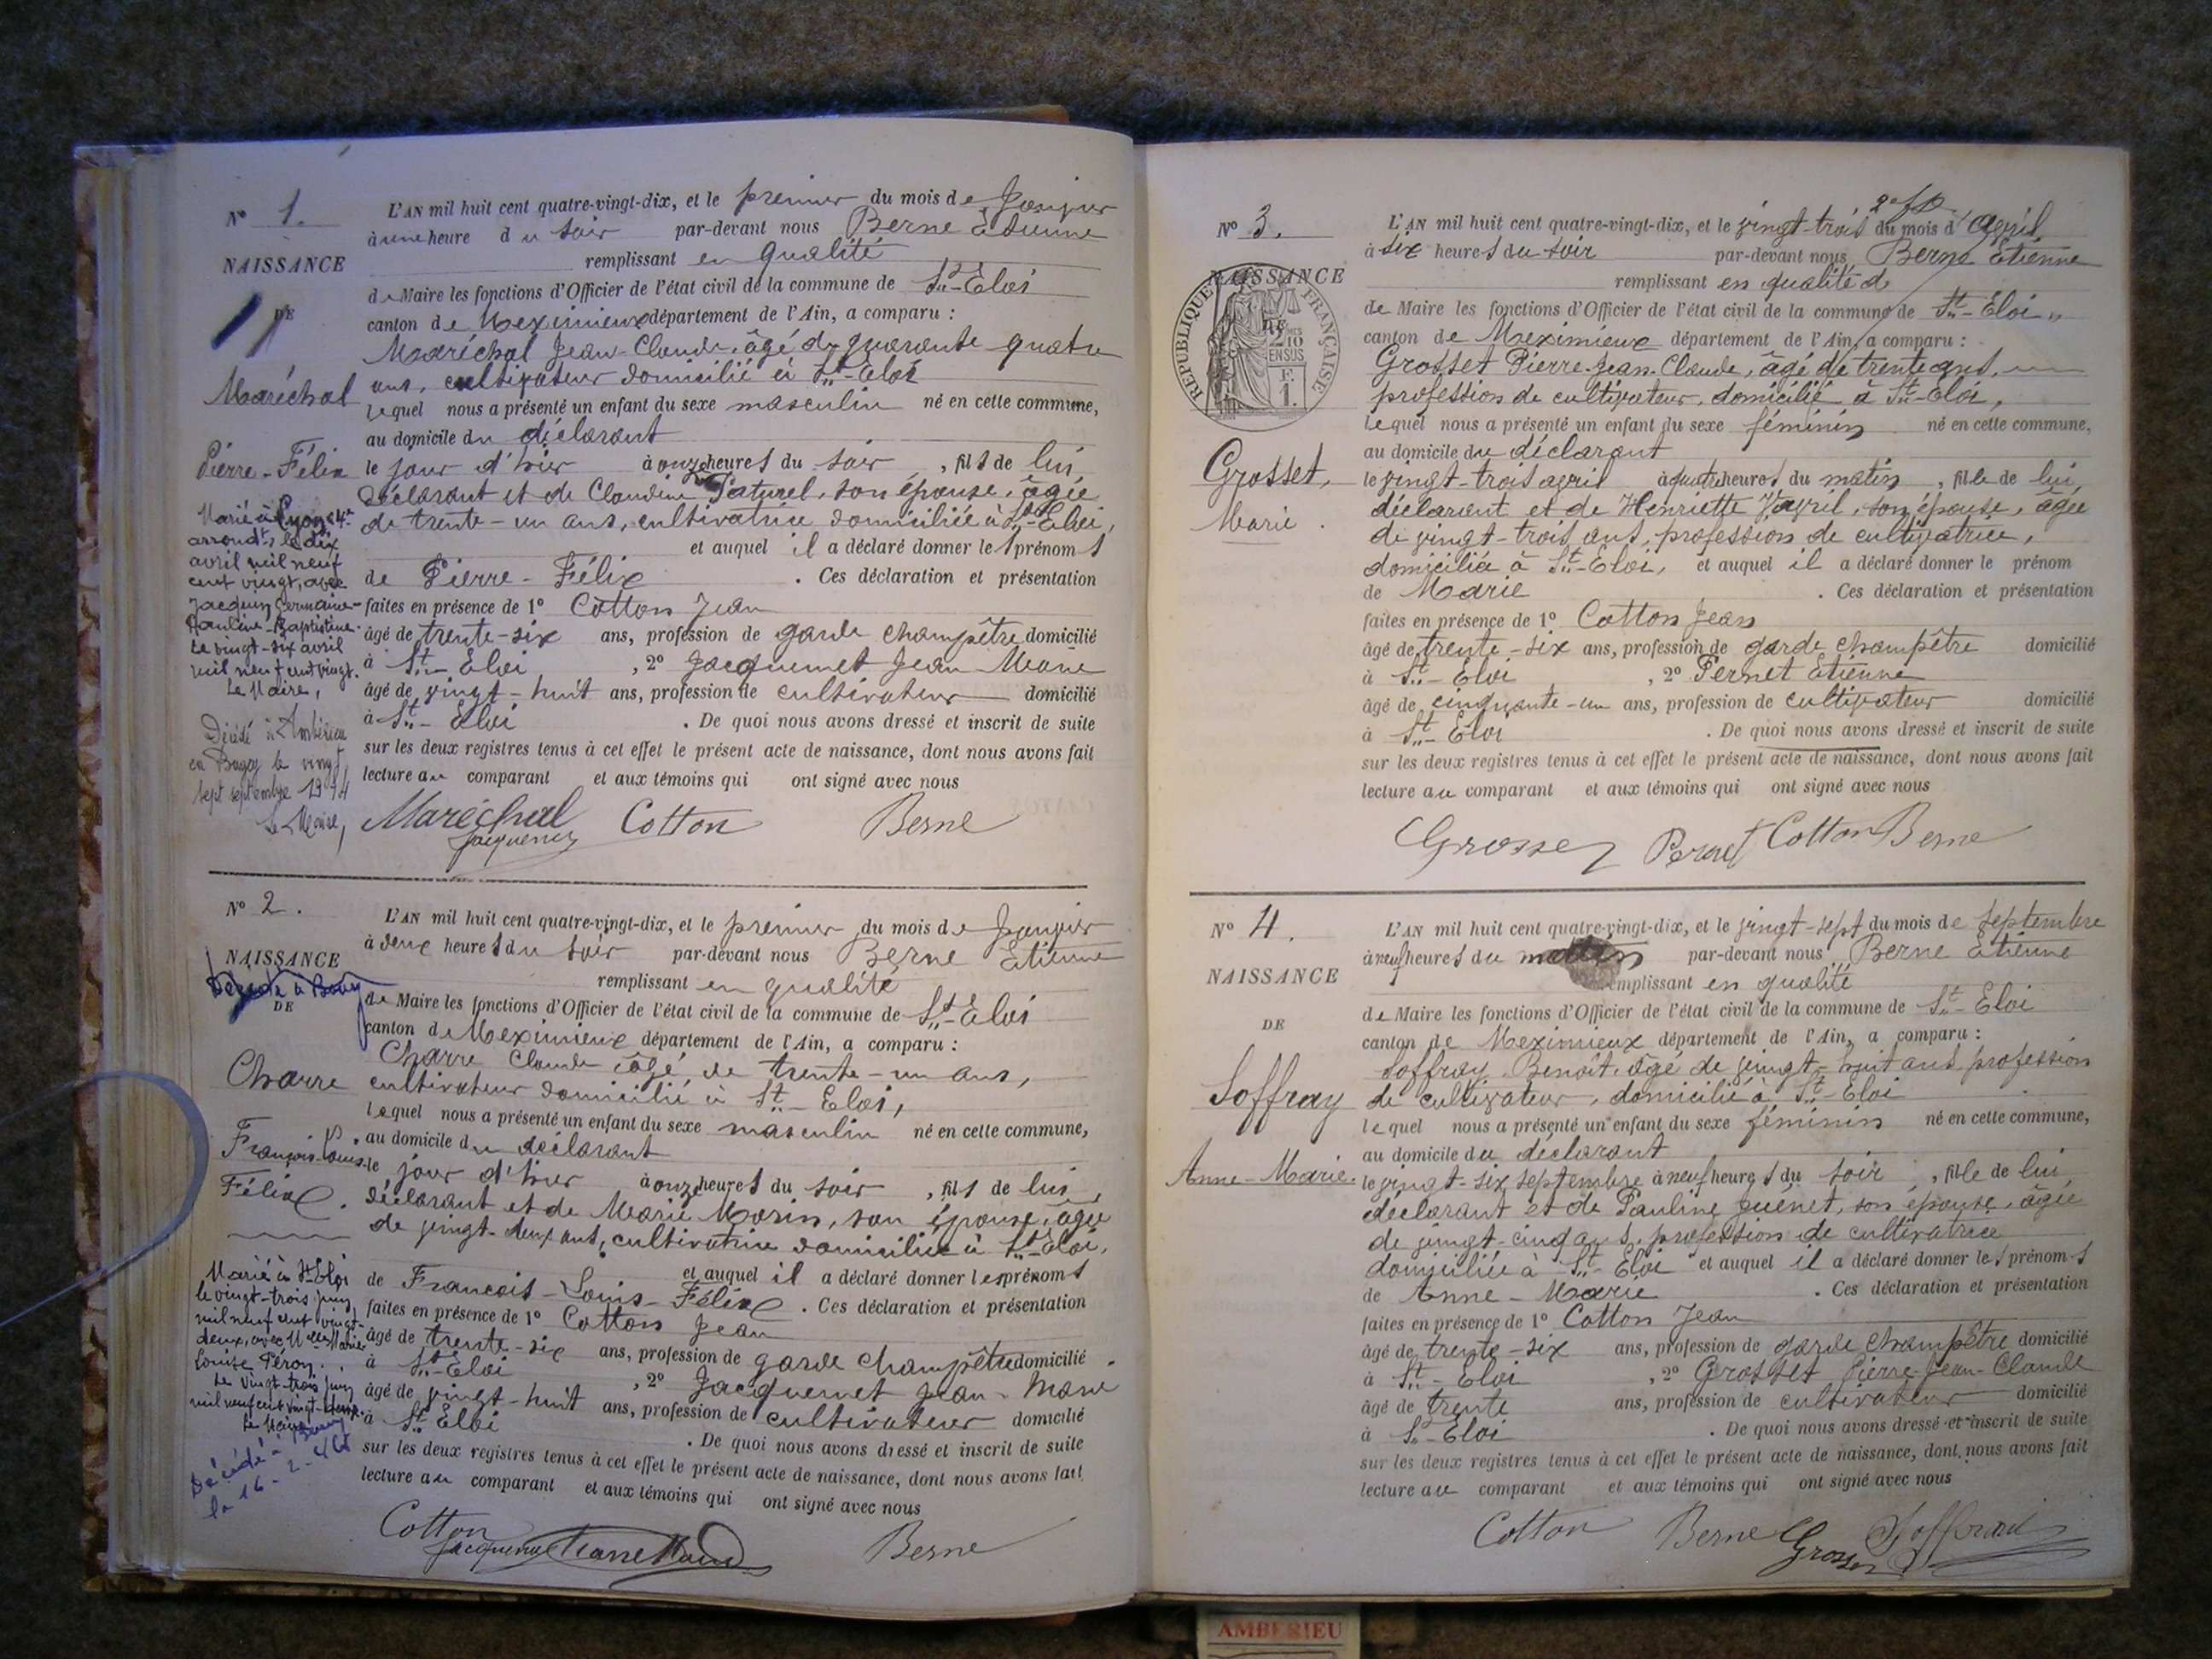 N° 1.
NAISSANCE
DE
Maréchal
Pierre-Félix
Marié à Lyon 4e
arrondt, le dix
avril mil neuf
cent vingt, avec
Jacquin Germaine-
Pauline-Baptistine.
Le vingt-six avril
mil neuf cent vingt.
Le Maire,
Décédé à Ambérieu
en Bugey le vingt
sept septembre 19
Le Maire,
L'AN mil huit cent quatre-vingt-dix, et le premier du mois de Janvier
à une heure du soir par-devant nous Berne Etienne
remplissant en qualité
de Maire les fonctions d'Officier de l'état civil de la commune de St-Eloi
canton de Meximieux département de l'Ain, a comparu :
Maréchal Jean-Claude, âgé de quarante-quatre
ans, cultivateur domicilié à St-Eloi
lequel nous a présenté un enfant du sexe masculin né en cette commune,
au domicile du déclarant
le jour d'hier à onze heures du soir, fils de lui
déclarant et de Claudine Paturel, son épouse, âgée
de trente-un ans, cultivatrice domiciliée à St-Eloi,
et auquel il a déclaré donner les prénoms
de Pierre-Félix. Ces déclaration et présentation
faites en présence de 1° Cotton Jean
âgé de trente-six ans, profession de garde champêtre domicilié
à St-Eloi, 2° Jacquemet Jean-Marie
âgé de vingt-huit ans, profession de cultivateur domicilié
à St-Eloi. De quoi nous avons dressé et inscrit de suite
sur les deux registres tenus à cet effet le présent acte de naissance, dont nous avons fait
lecture au comparant et aux témoins qui ont signé avec nous
Maréchal Cotton Berne
Jacquemet
N° 2.
NAISSANCE
Décédé à Bourg
DE
Charre
François-Louis-
Félix.
Marié à St Eloi
le vingt-trois juin
mil neuf cent vingt-
deux, avec Melle Marie
Louise Péroy.
Le vingt-trois juin
mil neuf cent vingt-deux.
Le Maire
Décédé à Bourg
le 16-2-
L'AN mil huit cent quatre-vingt-dix, et le premier du mois de Janvier
à deux heures du soir par-devant nous Berne Etienne
remplissant en qualité
de Maire les fonctions d'Officier de l'état civil de la commune de St-Eloi
canton de Meximieux département de l'Ain, a comparu :
Charre Claude âgé de trente-un ans,
cultivateur domicilié à St-Eloi,
lequel nous a présenté un enfant du sexe masculin né en cette commune,
au domicile du déclarant
le jour d'hier à onze heures du soir, fils de lui
déclarant et de Marie Morin, son épouse, âgée
de vingt-deux ans, cultivatrice domiciliée à St-Eloi,
et auquel il a déclaré donner les prénoms
de François-Louis-Félix. Ces déclaration et présentation
faites en présence de 1° Cotton Jean
âgé de trente-six ans, profession de garde champêtre domicilié
à St-Eloi, 2° Jacquemet Jean-Marie
âgé de vingt-huit ans, profession de cultivateur domicilié
à St Eloi. De quoi nous avons dressé et inscrit de suite
sur les deux registres tenus à cet effet le présent acte de naissance, dont nous avons fait
lecture au comparant et aux témoins qui ont signé avec nous
Cotton Berne
Jacquemet
N° 3.
NAISSANCE
DE
REPUBLIQUE FRANÇAISE
2 10
EN SUS
F.
1.
Grosset,
Marie.
L'AN mil huit cent quatre-vingt-dix, et le vingt-trois du mois d'avril
à six heures du soir par-devant nous Berne Etienne
remplissant en qualité d
de Maire les fonctions d'Officier de l'état civil de la commune de St-Eloi
canton de Meximieux département de l'Ain, a comparu :
Grosset Pierre-Jean-Claude, âgé de trente ans,
profession de cultivateur, domicilié à St-Eloi,
lequel nous a présenté un enfant du sexe féminin né en cette commune,
au domicile du déclarant
le vingt-trois avril à quatre heures du matin, fille de lui
déclarant et de Henriette Vavril, son épouse, âgée
de vingt-trois ans, profession de cultivatrice,
domiciliée à St-Eloi, et auquel il a déclaré donner le prénom
de Marie. Ces déclaration et présentation
faites en présence de 1° Cotton Jean
âgé de trente-six ans, profession de garde champêtre domicilié
à St-Eloi, 2° Pernet Etienne
âgé de cinquante-un ans, profession de cultivateur domicilié
à St-Eloi. De quoi nous avons dressé et inscrit de suite
sur les deux registres tenus à cet effet le présent acte de naissance, dont nous avons fait
lecture au comparant et aux témoins qui ont signé avec nous
Grosset Pernet Cotton Berne
N° 4.
NAISSANCE
DE
Soffray
Anne-Marie.
L'AN mil huit cent quatre-vingt-dix, et le vingt-sept du mois de septembre
à neuf heures du matin par-devant nous Berne Etienne
remplissant en qualité
de Maire les fonctions d'Officier de l'état civil de la commune de St-Eloi
canton de Meximieux département de l'Ain, a comparu :
Soffray Benoît, âgé de vingt-huit ans profession
de cultivateur, domicilié à St-Eloi
lequel nous a présenté un enfant du sexe féminin né en cette commune,
au domicile du déclarant
le vingt-six septembre à neuf heures du soir, fille de lui
déclarant et de Pauline Juénet, son épouse, âgée
de vingt-cinq ans, profession de cultivatrice
domiciliée à St-Eloi et auquel il a déclaré donner les prénoms
de Anne-Marie. Ces déclaration et présentation
faites en présence de 1° Cotton Jean
âgé de trente-six ans, profession de garde champêtre domicilié
à St-Eloi, 2° Grosset Pierre-Jean-Claude
âgé de trente ans, profession de cultivateur domicilié
à St-Eloi. De quoi nous avons dressé et inscrit de suite
sur les deux registres tenus à cet effet le présent acte de naissance, dont nous avons fait
lecture au comparant et aux témoins qui ont signé avec nous
Cotton Berne Grosset Soffray
AMBERIEU